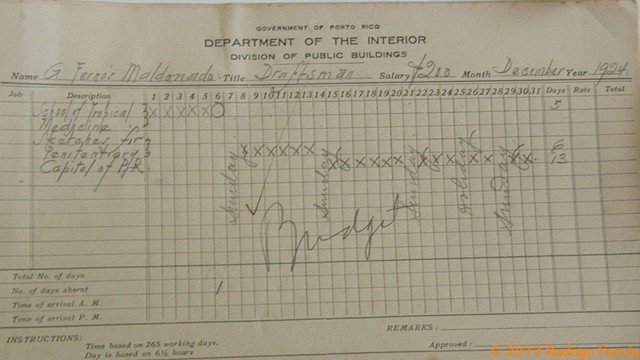 GOVERNMENT OF PORTO RICO
DEPARTMENT OF THE INTERIOR
DIVISION OF PUBLIC BUILDINGS
Name G. Ferrer Maldonado Title Draftsman Salary $200 Month December Year 1924
Job Description 1 2 3 4 5 6 7 8 9 10 11 12 13 14 15 16 17 18 19 20 21 22 23 24 25 26 27 28 29 30 31 Days Rate Total
School of Tropical X X X X X O 5
Medicine
Sketches for X X X X X X 6
Penitentiary X X X X X X X X X X X X X 13
Capitol of P.R.
Sunday Sunday Sunday Holiday Sunday
Budget
Total No. of days
No. of days absent 1
Time of arrival A. M.
Time of arrival P. M.
INSTRUCTIONS: REMARKS:
Time based on 265 working days.
Day is based on 6½ hours Approved:
© 2013 Rodrigo